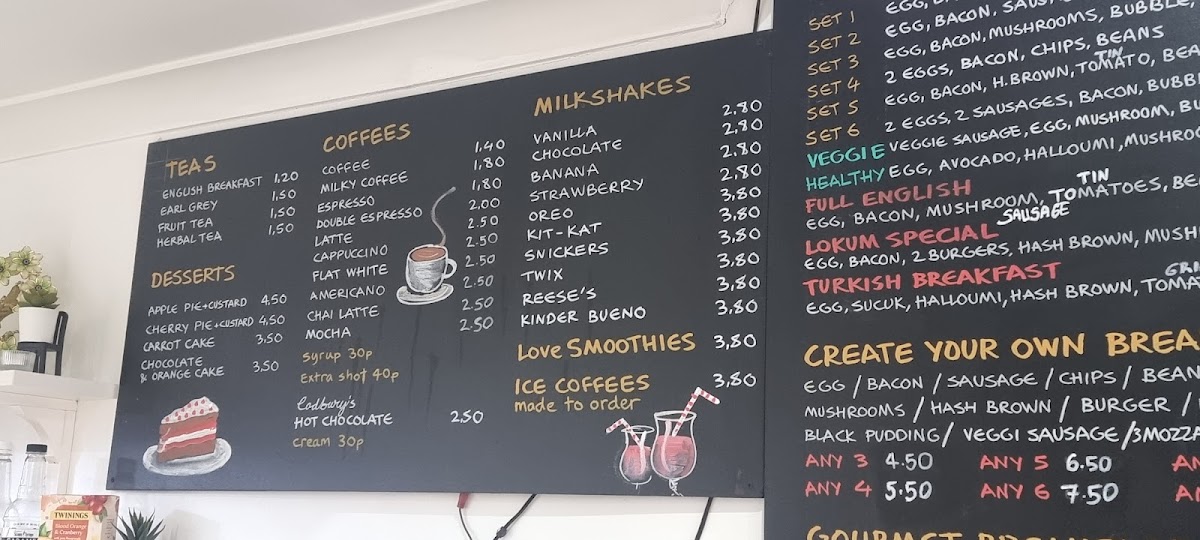 TEAS
ENGLISH BREAKFAST 1,20
EARL GREY 1,50
FRUIT TEA 1,50
HERBAL TEA 1,50
DESSERTS
APPLE PIE+CUSTARD 4,50
CHERRY PIE+CUSTARD 4,50
CARROT CAKE 3,50
CHOCOLATE
& ORANGE CAKE 3,50
COFFEES
COFFEE 1,40
MILKY COFFEE 1,80
ESPRESSO 1,80
DOUBLE ESPRESSO 2,00
LATTE 2.50
CAPPUCCINO 2.50
FLAT WHITE 2.50
AMERICANO 2.50
CHAI LATTE 2.50
MOCHA 2.50
Syrup 30p
Extra shot 40p
Cadbury's
HOT CHOCOLATE 2.50
cream 30p
MILKSHAKES
VANILLA 2,80
CHOCOLATE 2,80
BANANA 2,80
STRAWBERRY 2,80
OREO 3,80
KIT-KAT 3,80
SNICKERS 3,80
TWIX 3,80
REESE'S 3,80
KINDER BUENO 3,80
LOVE SMOOTHIES 3,80
ICE COFFEES 3,80
made to order
SET 1 EGG, BACON, SAUS
SET 2 EGG, BACON, MUSHROOMS, BUBBLE,
SET 3 2 EGGS, BACON, CHIPS, BEANS
SET 4 EGG, BACON, H.BROWN, TIN TOMATO, BEA
SET 5 2 EGGS, 2 SAUSAGES, BACON, BUBB
SET 6 VEGGIE SAUSAGE, EGG, MUSHROOM, BU
VEGGIE EGG, AVOCADO, HALLOUMI, MUSHROO
HEALTHY
FULL ENGLISH
EGG, BACON, MUSHROOM, TIN TOMATOES, BE
LOKUM SPECIAL SAUSAGE
EGG, BACON, 2 BURGERS, HASH BROWN, MUSH
TURKISH BREAKFAST
EGG, SUCUK, HALLOUMI, HASH BROWN, GRI TOMA
CREATE YOUR OWN BREA
EGG / BACON / SAUSAGE / CHIPS / BEAN
MUSHROOMS / HASH BROWN / BURGER /
BLACK PUDDING / VEGGI SAUSAGE / 3 MOZZA
ANY 3 4.50 ANY 5 6.50 AN
ANY 4 5.50 ANY 6 7.50 AN
TWININGS
Blood Orange
& Cranberry